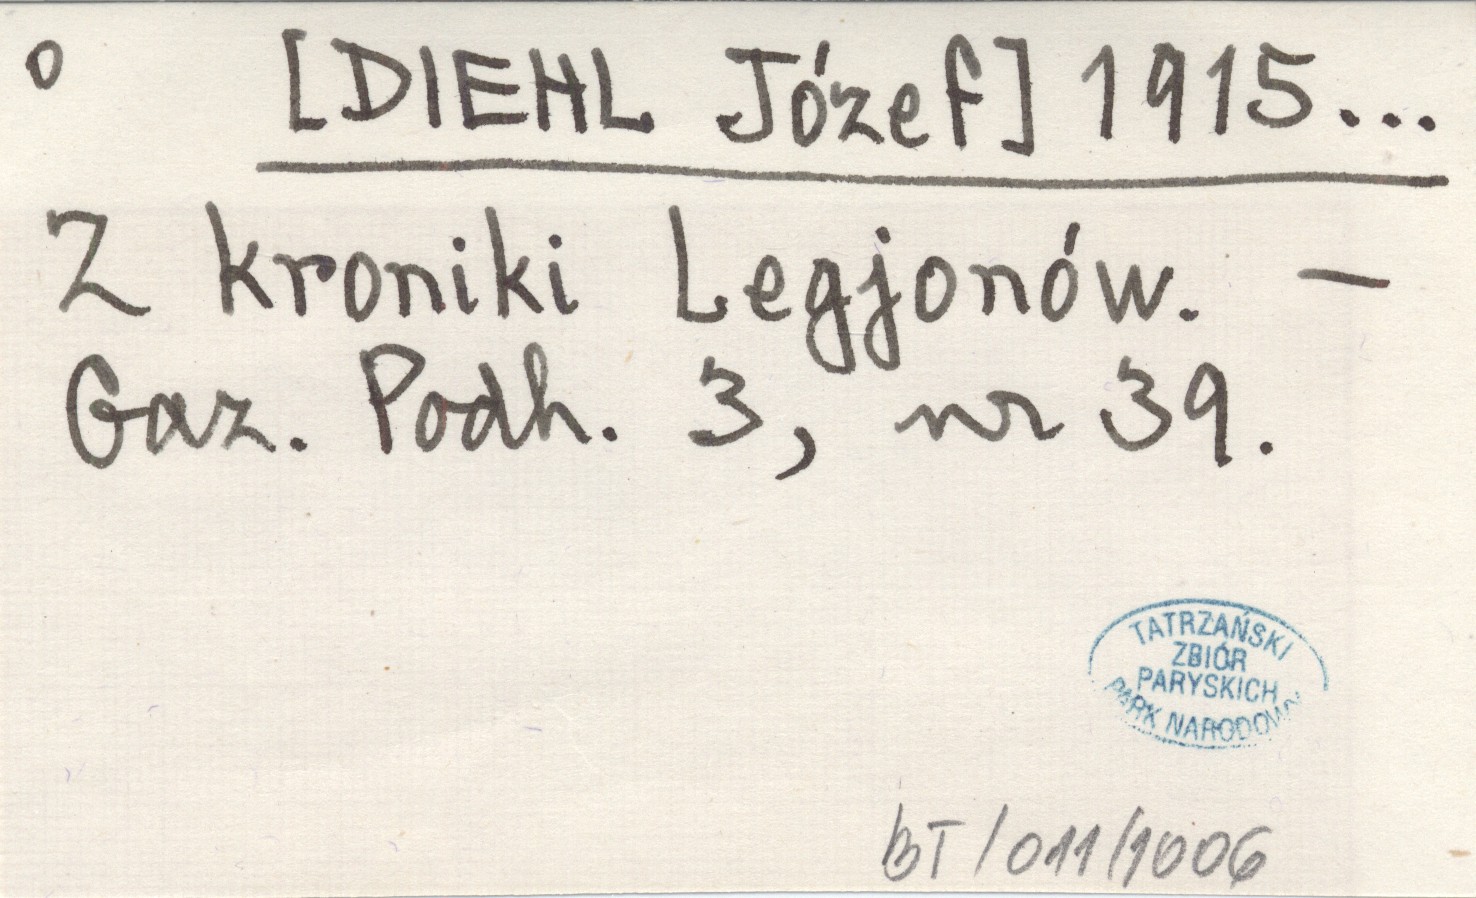 o [DIEHL Józef] 1915...
Z kroniki Legjonów. —
Gaz. Podh. 3, nr 39.
TATRZAŃSKI
ZBIÓR
PARYSKICH
PARK NARODOWY
BT/011/1006